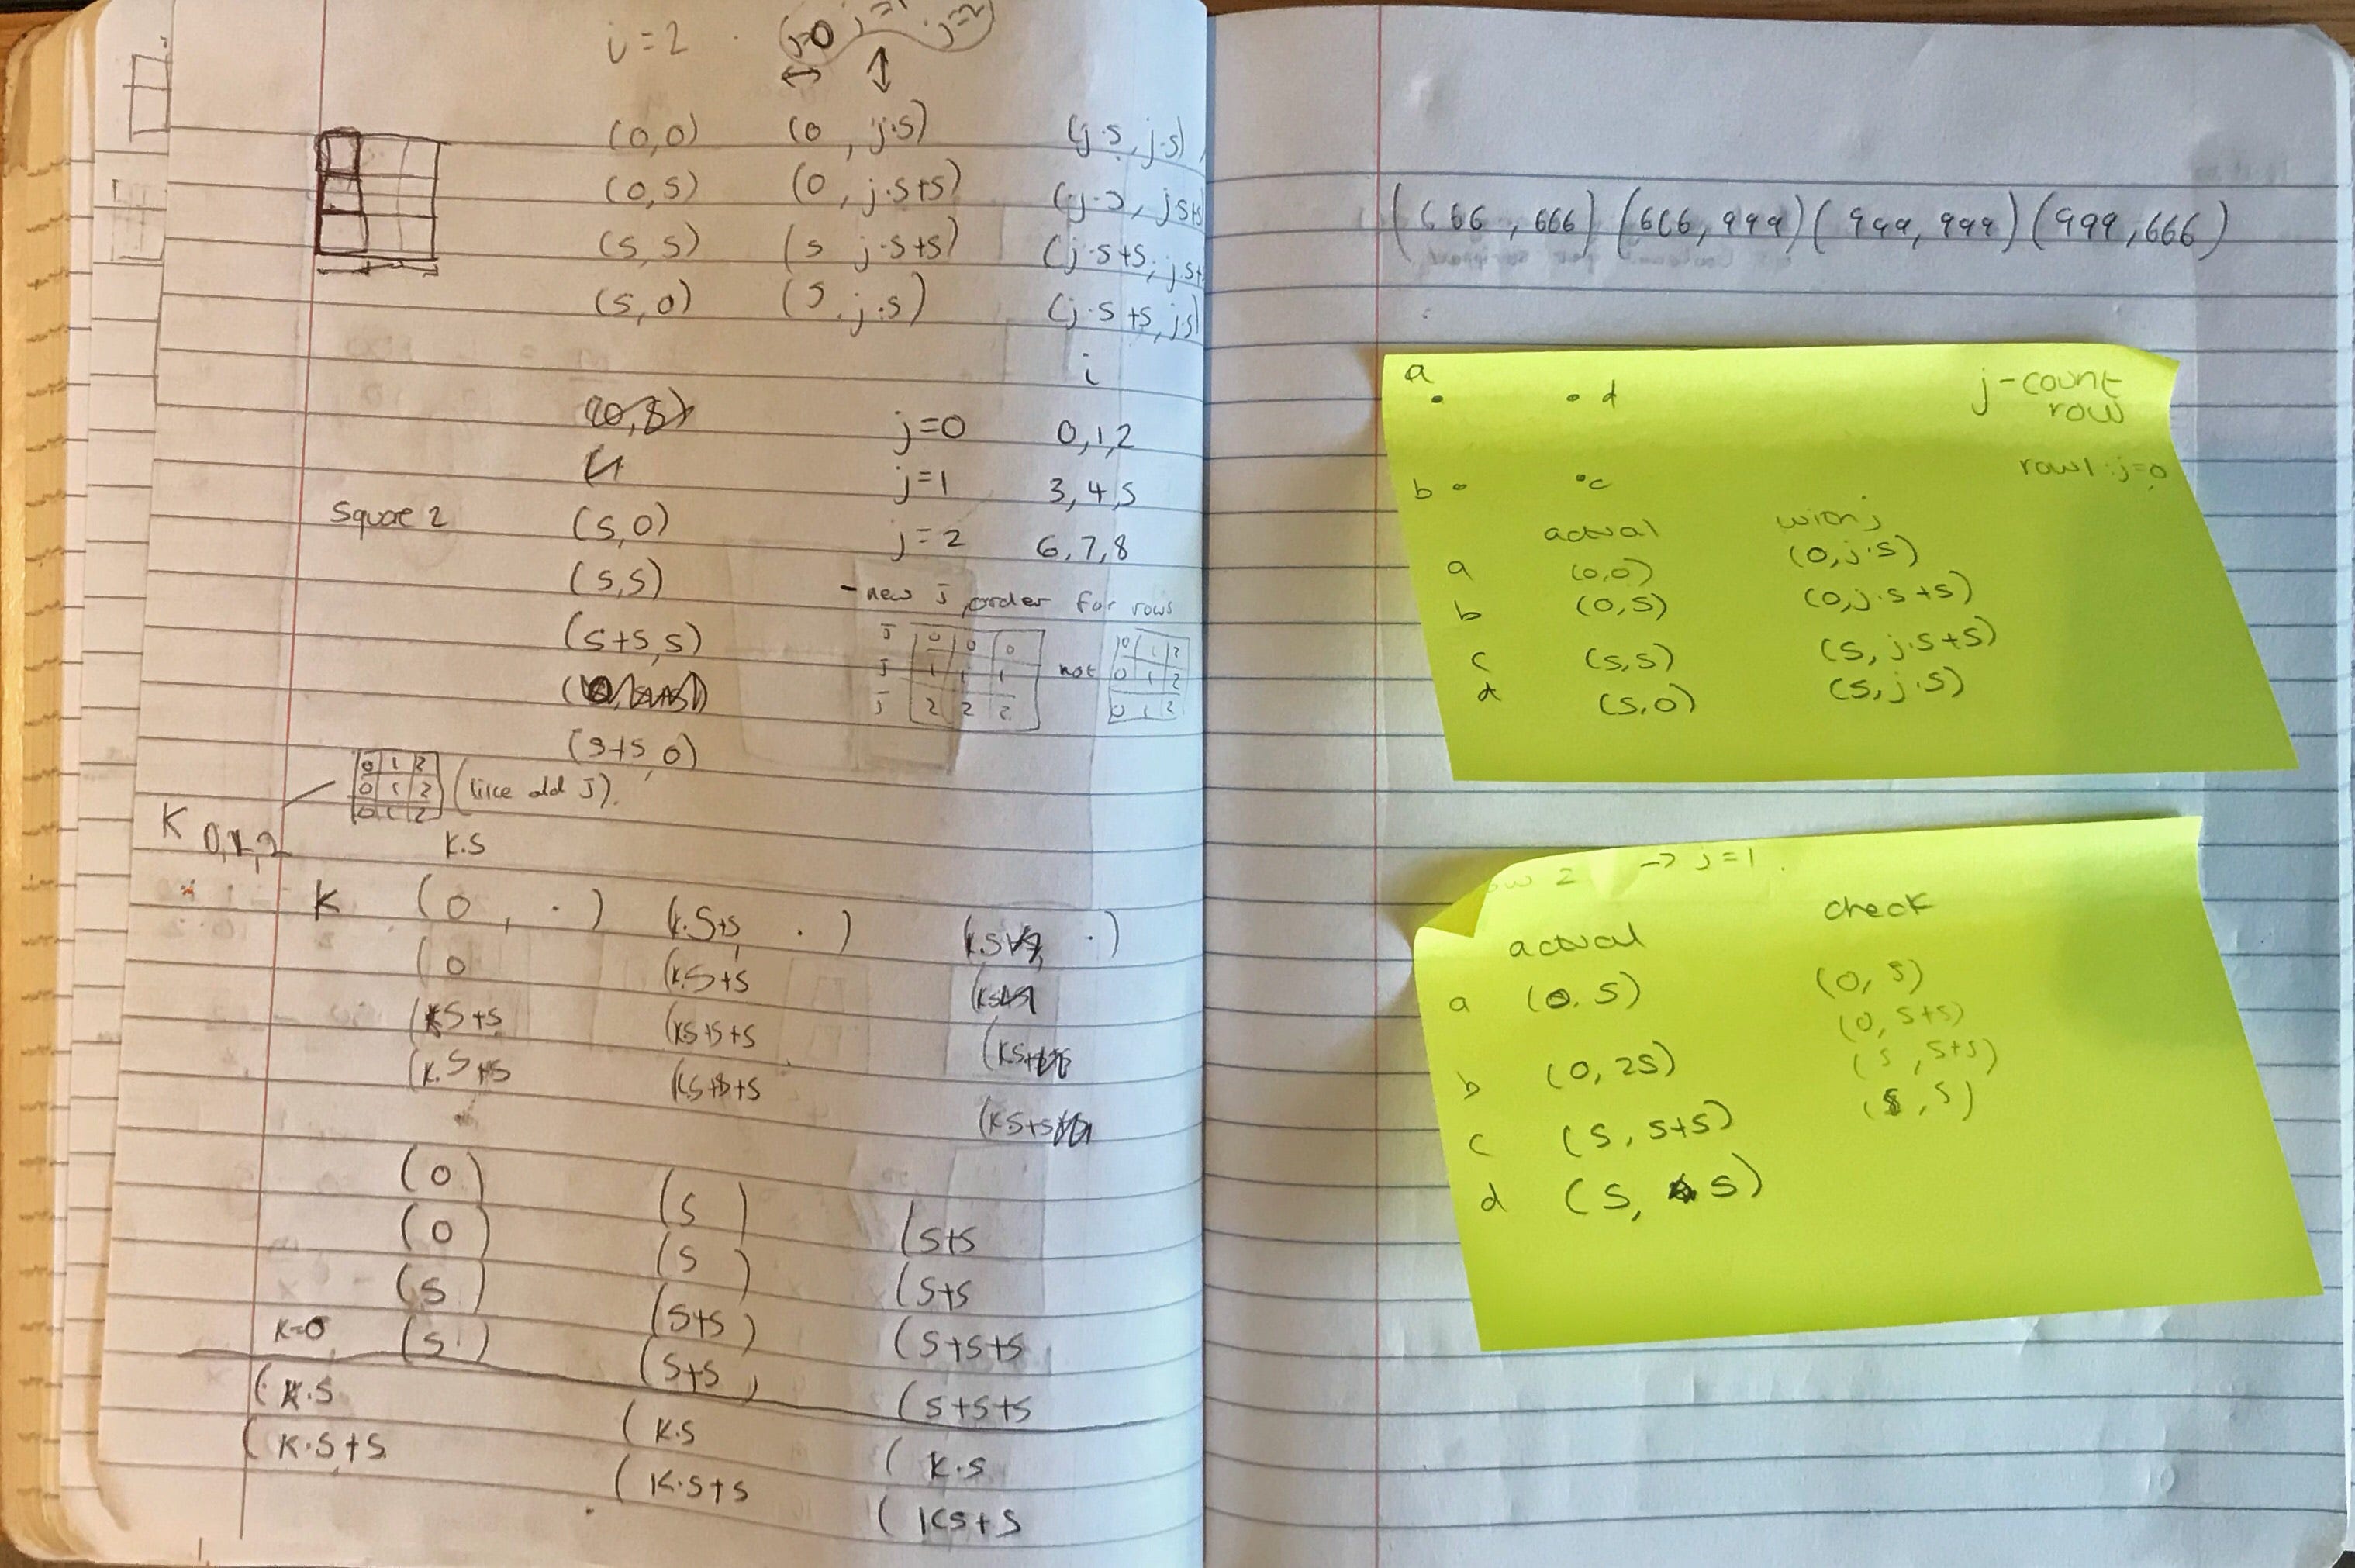 i=2 j=0 j=1 j=2
(0,0) (0, j·s) (j·s, j·s)
(0,s) (0, j·s+s) (j·s, js+s
(s,s) (s j·s+s) (j·s+s, j·s+
(s,0) (s, j·s) (j·s+s, j·s)
i
j=0 0,1,2
j=1 3,4,5
Square 2 (s,0) j=2 6,7,8
(s,s)
- new j order for rows
(s+s,s)
j 0 0 0 not 0 1 2
j 1 1 1 0 1 2
j 2 2 2 0 1 2
(s+s,0)
0 1 2
0 1 2 (like old J).
0 1 2
K 0,1,2
K.S
K (0, ·) (k.S+s, ·) (k.s ·)
(0 (k.S+s (ks
(kS+s (ks+s+s (ks+
(k.S+s (ks+s+s (ks+s
(0) (s) (s+s
(0) (s) (s+s
(s) (s+s) (s+s+s
K=0 (s·) (s+s) (s+s+s
(K.S (K.S (K.S
(K.S+S (K.S+S (KS+S
(666,666) (666,999) (999,999) (999,666)
a d j-count
row
b c row1: j=0
actual with j
a (0,0) (0,j·s)
b (0,s) (0,j·s+s)
c (s,s) (s, j·s+s)
d (s,0) (s, j·s)
row 2 -> j=1.
actual check
a (0,s) (0,s)
b (0,2s) (0,s+s)
c (s,s+s) (s,s+s)
d (s, s) (s,s)